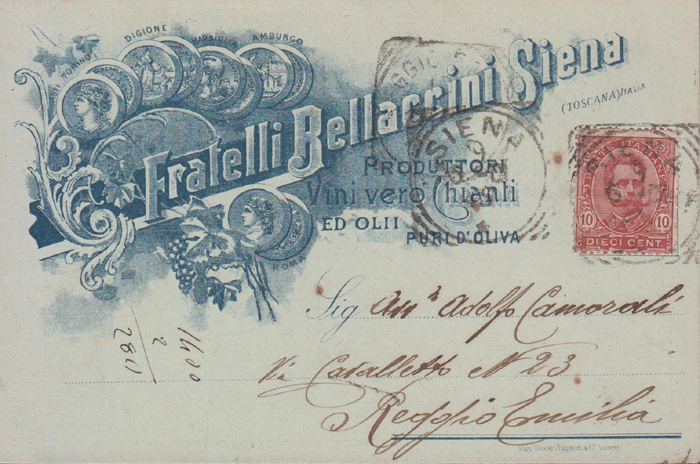 TORINO
DIGIONE
MARSIGLIA
AMBURGO
Fratelli Bellaccini Siena
(TOSCANA) ITALIA
PRODUTTORI
Vini vero Chianti
ED OLII
PURI D'OLIVA
ROMA
SIENA
10 10
DIECI CENT.
Sig Adolfo Camorali
Via Cavalletto N 23
Reggio Emilia
1400
2
280